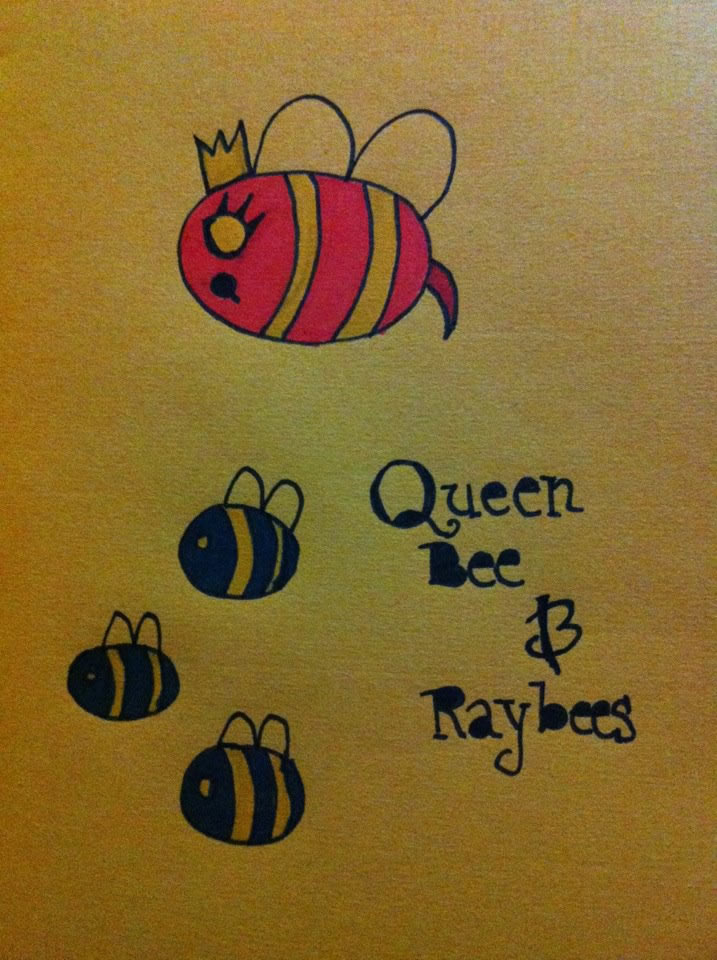 Queen
Bee
&
Raybees